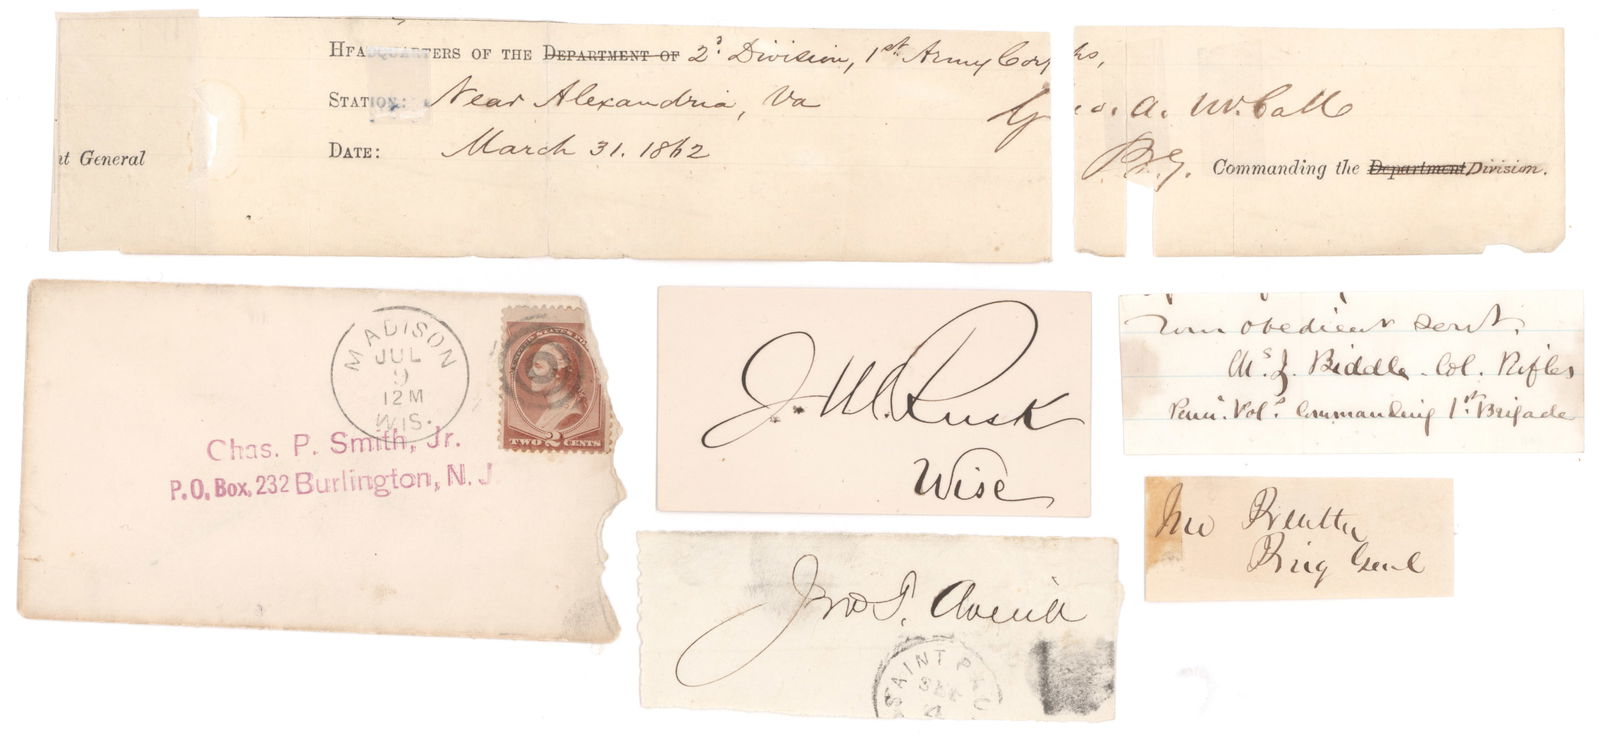 HEADQUARTERS OF THE DEPARTMENT OF 2d Division, 1st Army Corps,
STATION: Near Alexandria, Va
DATE: March 31. 1862
nt General
Geo. A. McCall
B.G. Commanding the Department Division.
MADISON
JUL
9
12 M
WIS.
TWO 2 CENTS
Chas. P. Smith, Jr.
P.O. Box, 232 Burlington, N. J.
J. M. Rusk
Wisc
Your obedient servt.
Biddle. Col. Rifles
Penn. Vols. Commanding 1st Brigade
Brig Genl
Jno T. Averill
SAINT PAU
SEP